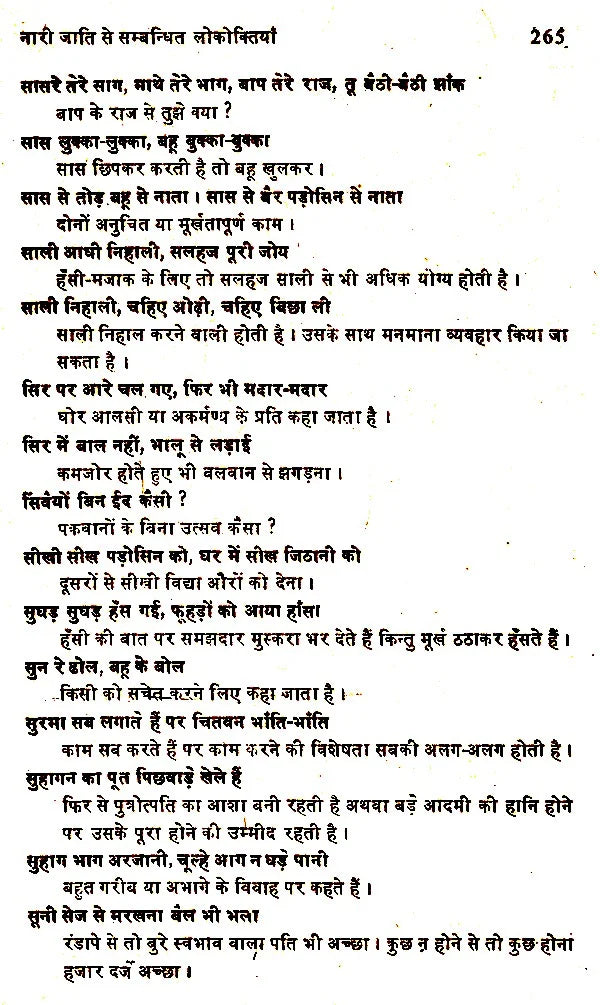 नारी जाति से सम्बन्धित लोकोक्तियाँ 265
सासरे तेरे साग, माथे तेरे भाग, बाप तेरे राज, तू बैठी-बैठी झाँक
बाप के राज से तुझे क्या ?
सास लुक्का-लुक्का, बहू बुक्का-बुक्का
सास छिपकर करती है तो बहू खुलकर ।
सास से तोड़ बहू से नाता । सास से बैर पड़ोसिन से नाता
दोनों अनुचित या मूर्खतापूर्ण काम ।
साली आधी निहाली, सलहज पूरी जोय
हँसी-मजाक के लिए तो सलहज साली से भी अधिक योग्य होती है ।
साली निहाली, चहिए ओढ़ी, चहिए बिछा ली
साली निहाल करने वाली होती है । उसके साथ मनमाना व्यवहार किया जा
सकता है ।
सिर पर आरे चल गए, फिर भी मदार-मदार
घोर आलसी या अकर्मण्य के प्रति कहा जाता है ।
सिर में बाल नहीं, भालू से लड़ाई
कमजोर होते हुए भी बलवान से झगड़ना ।
सिवैयों बिन ईद कैसी ?
पकवानों के बिना उत्सव कैसा ?
सीखी सीख पड़ोसिन को, घर में सीख जिठानी को
दूसरों से सीखी विद्या औरों को देना ।
सुघड़ सुघड़ हँस गई, फूहड़ों को आया हाँसा
हँसी की बात पर समझदार मुस्करा भर देते हैं किन्तु मूर्ख ठठाकर हँसते हैं ।
सुन रे ढोल, बहू के बोल
किसी को सचेत करने लिए कहा जाता है ।
सुरमा सब लगाते हैं पर चितवन भाँति-भाँति
काम सब करते हैं पर काम करने की विशेषता सबकी अलग-अलग होती है ।
सुहागन का पूत पिछवाड़े खेले हैं
फिर से पुत्रोत्पति का आशा बनी रहती है अथवा बड़े आदमी की हानि होने
पर उसके पूरा होने की उम्मीद रहती है ।
सुहाग भाग अरजानी, चूल्हे आग न घड़े पानी
बहुत गरीब या अभागे के विवाह पर कहते हैं ।
सूनी सेज से मरखना बैल भी भला
रंडापे से तो बुरे स्वभाव वाला पति भी अच्छा । कुछ न होने से तो कुछ होना
हजार दर्जे अच्छा ।